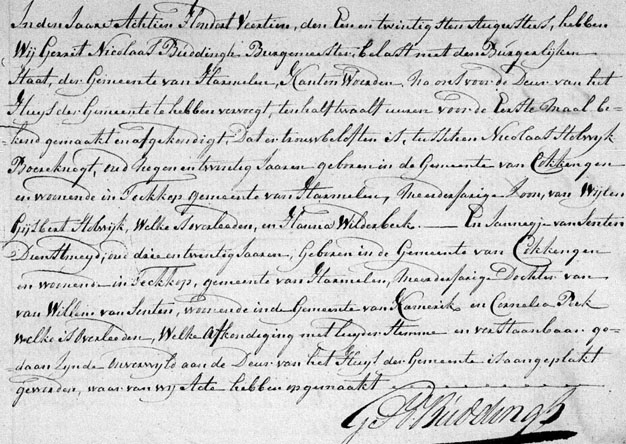 In den Jaare Achtien Hondert Veertien, den Een en twintigsten Augustus, hebben
Wij Gerret Nicolaas Buddingh Burgemeester, belast met den Burgerlijken
Staat, der Gemeente van Harmelen, Kanton Woerden, Na ons voor de Deur van het
Huys der Gemeente te hebben vervoegt, ten half twaalf uuren voor de Eerste maal be-
kend gemaakt en afgekondigt, Dat er trouwbeloften is, tusschen Nicolaas Holwyk
Boereknegt, oud negen en twintig Jaaren geboren in de Gemeente van Cokkengen
en woonende in Teckkop gemeente van Harmelen, Meerderjarige Zoon, van Wijlen
Gijsbert Holwijk, Welke is overleeden, en Hanna Wilderbeek. En Jannegje van Senten
Dienstmeyd, oud drie en twintig Jaaren, Geboren in de Gemeente van Cokkengen
en woonende in Teckkop, gemeente van Harmelen, meerderjarige Dochter van
van Willem van Senten, woonende in de Gemeente van Kamerik en Cornelia Pek
welke is overleeden, Welke Afkondeging met luyder Stemme en verstaanbaar ge-
daan Zynde onverwyld aan de Deur van het Huys der Gemeente is aangeplakt
geworden, waar van wij Acte hebben opgemaakt
G N Buddingh